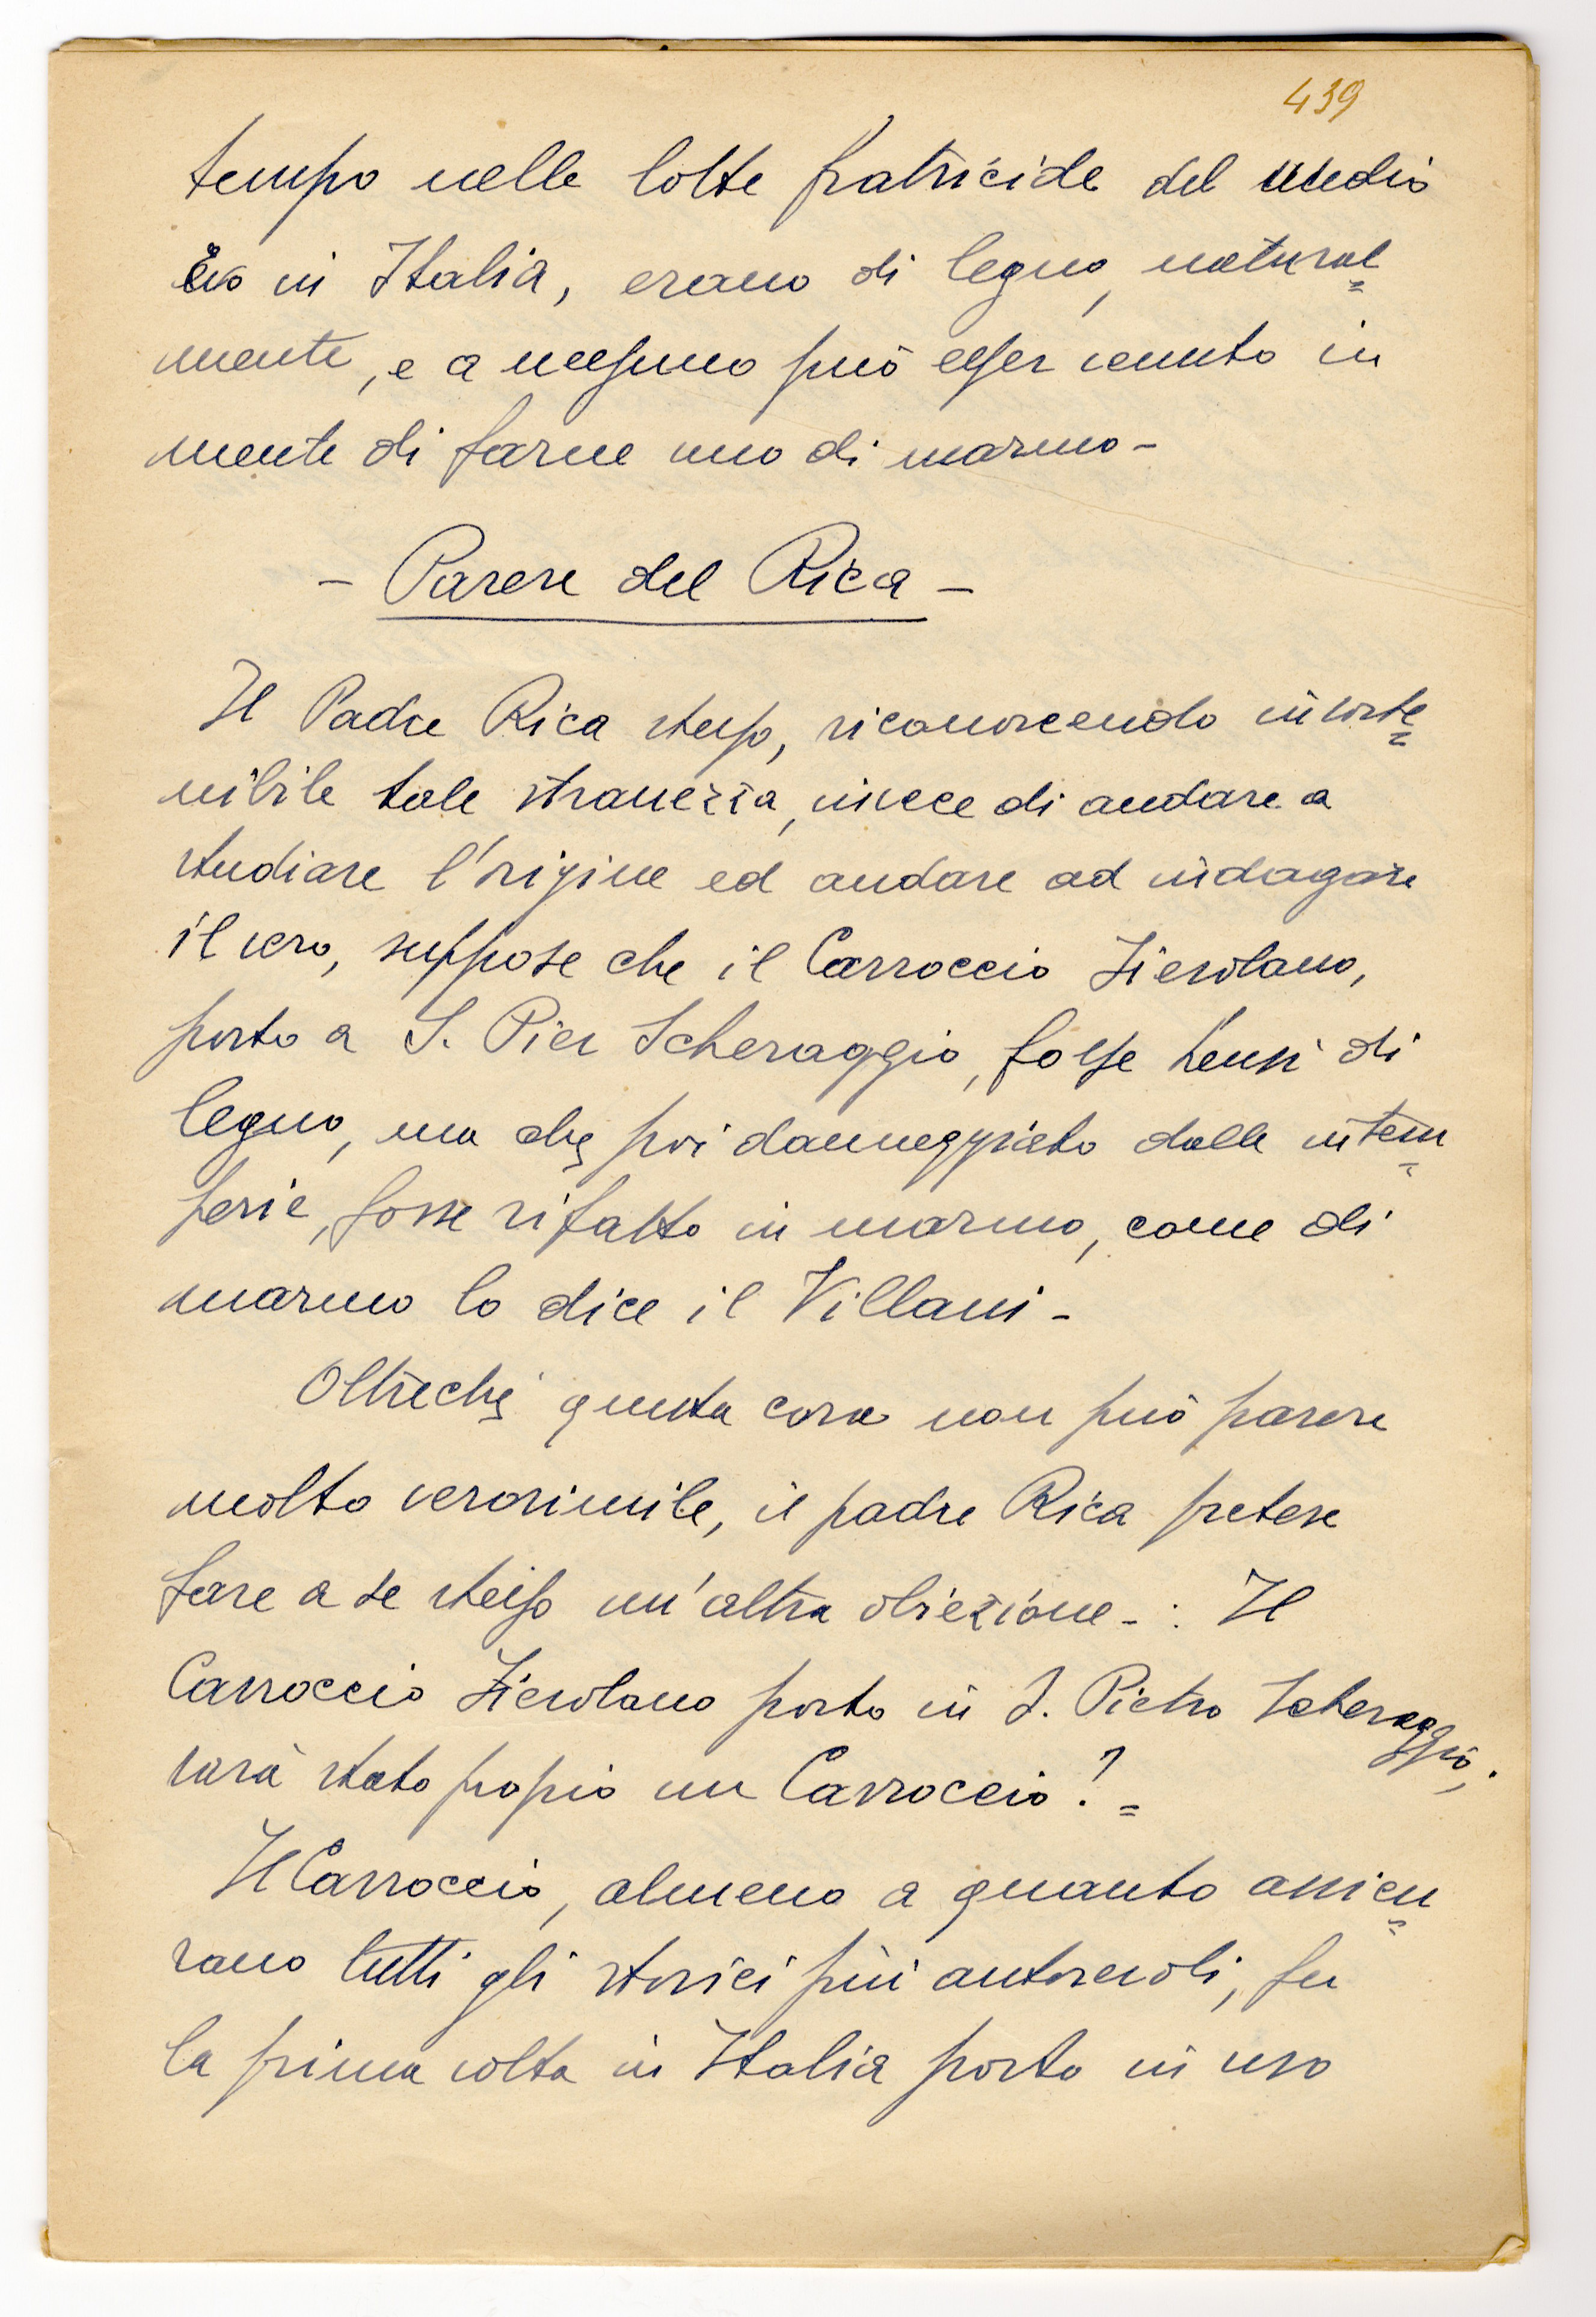 439
tempo nelle lotte fratricide del Medio
Evo in Italia, erano di legno, natural=
mente, e a nessuno può esser venuto in
mente di farne uno di marmo-
- Parere del Rica -
Il Padre Rica stesso, riconoscendo insoste=
nibile tale stranezza, invece di andare a
studiare l'origine ed andare ad indagare
il vero, suppose che il Carroccio Fiesolano,
posto a S. Pier Scheraggio, fosse bensì di
legno, ma che poi danneggiato dalle intem=
perie, fosse rifatto in marmo, come di
marmo lo dice il Villani-
Oltreché questa cosa non può parere
molto verosimile, il padre Rica pretese
fare a se stesso un'altra obiezione-: Il
Carroccio Fiesolano posto in S. Pietro Scheraggio,
sarà stato propio un Carroccio? =
Il Carroccio, almeno a quanto assicu=
rano tutti gli storici più autorevoli, fu
la prima volta in Italia posto in uso